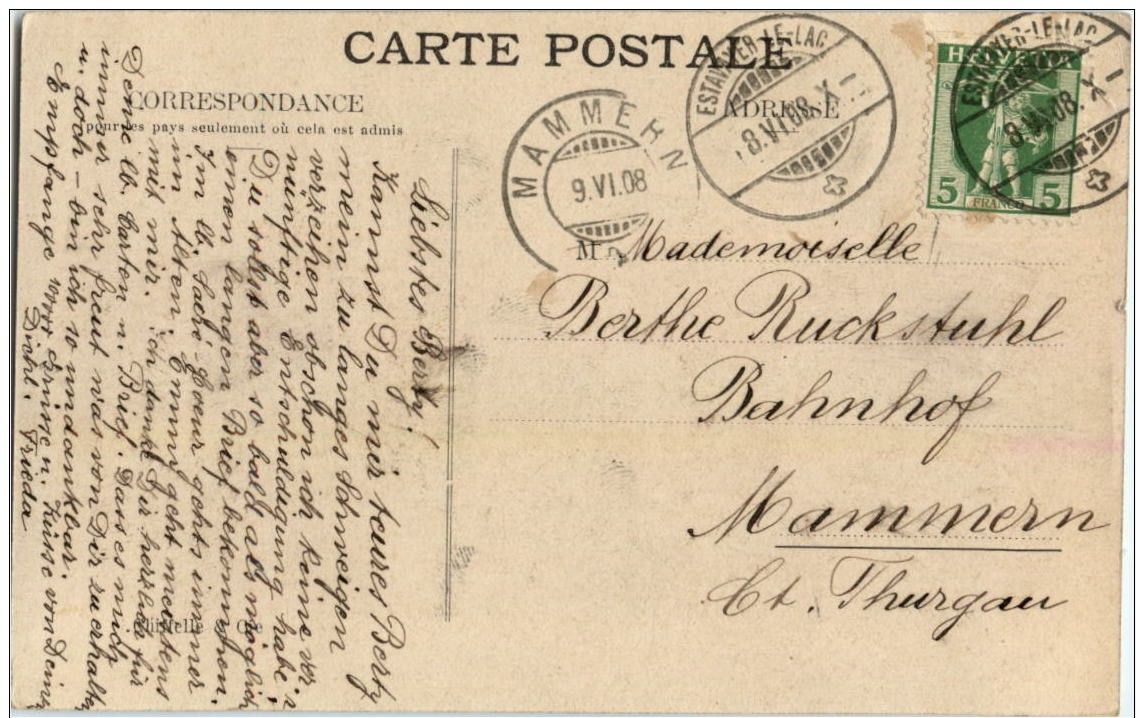 CARTE POSTALE
CORRESPONDANCE
pour les pays seulement où cela est admis
ADRESSE
ESTAVAYER-LE-LAC
8.VI.08.X
ESTAVAYER-LE-LAC
8.VI.08.X
HELVETIA
5 FRANCO 5
MAMMERN
9.VI.08
M Mademoiselle
Berthe Ruckstuhl
Bahnhof
Mammern
Ct. Thurgau
Liebstes Berty!
Kannst Du mir teures Berty
mein zu langes Schweigen
verzeihen obschon ich keine ver
nünftige Entschuldigung habe?
Du sollst aber so bald als möglich
einen langen Brief bekommen.
Im lb. Sacré-Coeur gehts immer
im Alten. Emmy geht meistens
mit mir. Ich danke Dir herzlich für
Deine lb. Carten u. Brief. Dass es mich
immer sehr freut was von Dir zu erhalten
u. doch – bin ich so undankbar.
Empfange Grüsse u. Küsse von Deiner
Frieda